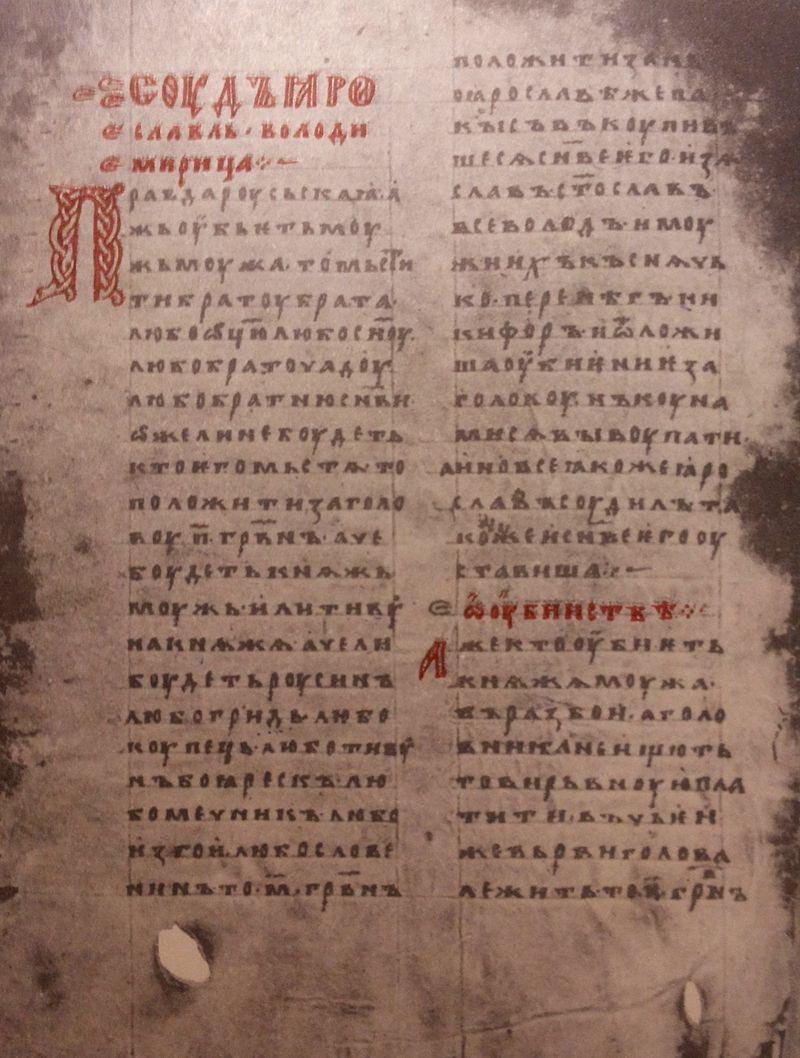 СОУДЪ ꙖРО
СЛАВЛЬ · ВОЛОДИ
МИРИЦА ⁘ ~
Правда роусьскаꙗ · а
жь оубьѥть моу
жь моужа · то мьстї
ти братоу брата ·
любо ѡц҃ю любо сн҃оу ·
любо братоучадоу
любо братню сн҃ви
ѡже ли не боудеть
кто ѥго мьстѧ то
положити за голо
воу · п҃ · грв҃нъ · аче
боудеть кнѧжь
моужь · или тивоу
на кнѧжѧ · аче ли
боудеть роусинъ
любо гридь · любо
коупець · любо тивоу
нъ боꙗрескъ · лю
бо мечникъ · любо
изгои · любо слове
нинъ то · м҃ · грв҃нъ
положити за нь
по ꙗрославѣ же па
кы съвъкоупивъ
шесѧ сн҃ве ѥго · изѧ
славъ · ст҃ославъ ·
всеволодъ · и моу
жи ихъ къснѧчь
ко · перенѣгъ · ни
кифоръ · и ѿложи
ша оубиениѥ за
головоу · нъ коуна
ми сѧ выкоупати ·
а ино все ꙗко же ꙗро
славъ соудилъ та
ко же и сн҃ве ѥго оу
ставиша ⁘ ~
Ѡ ОУБИИСТВѢ ⁘
Аже кто оубиѥть
кнѧжа моужа ·
въ разбои · а голо
вника не ищють
то вирьвноую пла
тити · въ чьѥи
же вьрви голова
лежить то · п҃ · грв҃нъ